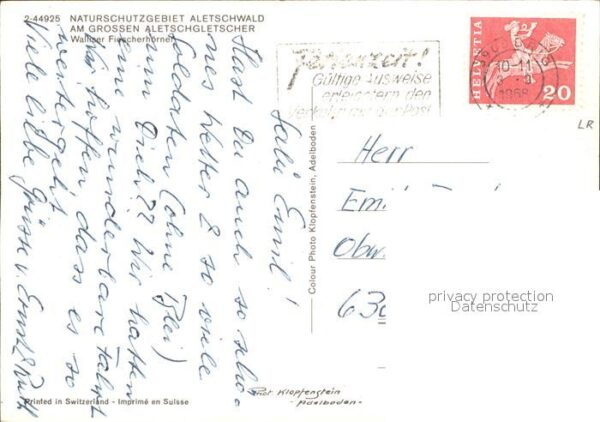 2-44925 NATURSCHUTZGEBIET ALETSCHWALD
AM GROSSEN ALETSCHGLETSCHER
Walliser Fiescherhörner
Ferienzeit!
Gültige Ausweise
erleichtern den
Verkehr mit der Post
1968
HELVETIA
20
LR
Salü Emil!
Hast Du auch so schö-
nes Wetter & so viele
Soldaten (ohne Blei)
um Dich?? Wir hatten
eine wunderbare Fahrt
Wir hoffen, dass es so
weitergeht
Viele liebe Grüsse v. Ernst & Ruth
Colour Photo Klopfenstein, Adelboden
Herr
Emi
Obw.
63
privacy protection
Datenschutz
Printed in Switzerland - Imprimé en Suisse
Phot. Klopfenstein
- Adelboden -